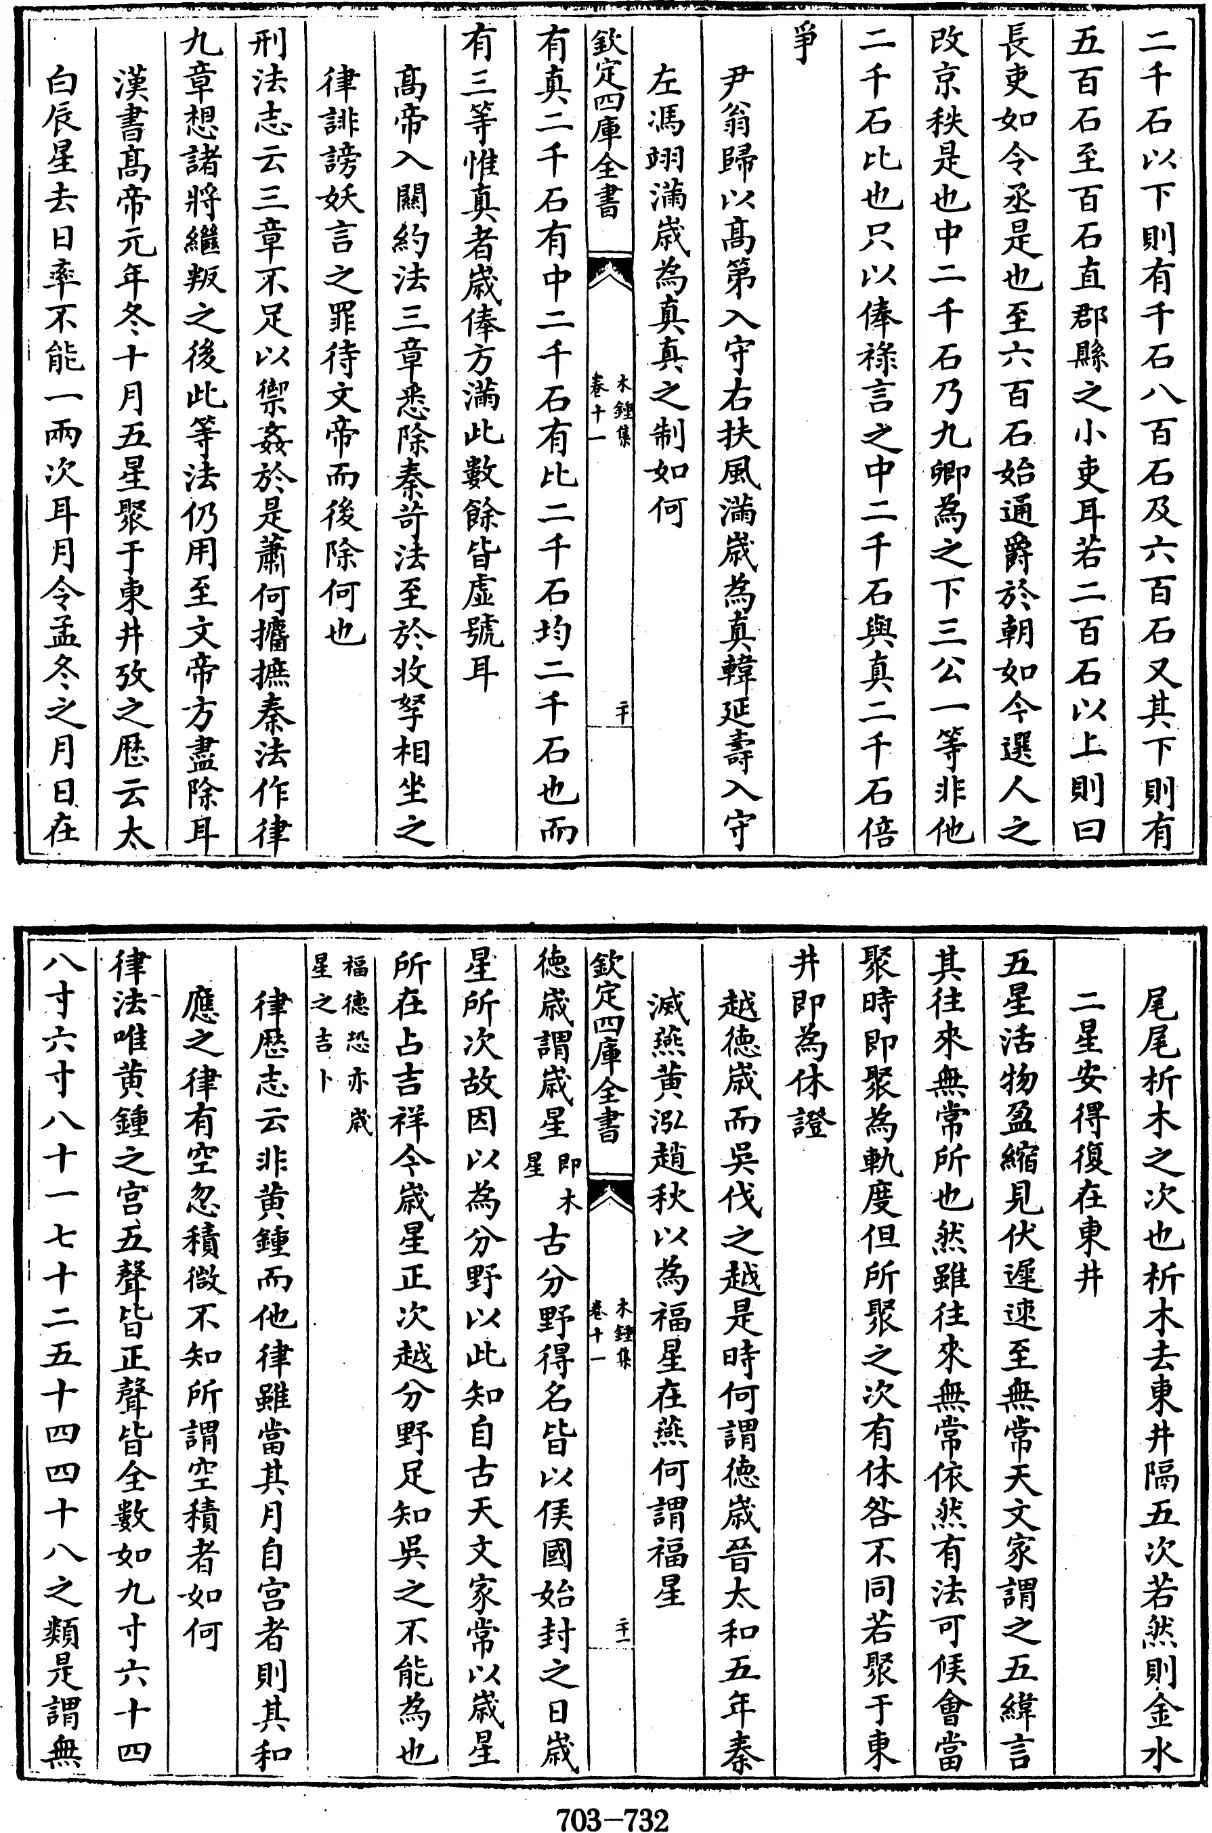 二千石以下則有千石八百石及六百石又其下則有
五百石至百石直郡縣之小吏耳若二百石以上則曰
長吏如令丞是也至六百石始通爵於朝如今選人之
改京秩是也中二千石乃九卿為之下三公一等非他
二千石比也只以俸祿言之中二千石與真二千石倍
爭
尹翁歸以髙第入守右扶風滿嵗為真韓延壽入守
左馮翊滿嵗為真真之制如何
欽定四庫全書
木鍾集
卷十一
二十
有真二千石有中二千石有比二千石均二千石也而
有三等惟真者嵗俸方滿此數餘皆虛號耳
髙帝入闗約法三章悉除秦苛法至於收孥相坐之
律誹謗妖言之罪待文帝而後除何也
刑法志云三章不足以禦姦於是蕭何攟摭秦法作律
九章想諸將繼叛之後此等法仍用至文帝方盡除耳
漢書髙帝元年冬十月五星聚于東井攷之厯云太
白辰星去日率不能一兩次耳月令孟冬之月日在
尾尾析木之次也析木去東井隔五次若然則金水
二星安得復在東井
五星活物盈縮見伏遲速至無常天文家謂之五緯言
其往來無常所也然雖往來無常依然有法可候會當
聚時即聚為軌度但所聚之次有休咎不同若聚于東
井即為休證
越徳嵗而吳伐之越是時何謂徳嵗晉太和五年秦
滅燕黄泓趙秋以為福星在燕何謂福星
欽定四庫全書
木鍾集
卷十一
二十一
徳嵗謂嵗星即木星古分野得名皆以侯國始封之日嵗
星所次故因以為分野以此知自古天文家常以嵗星
所在占吉祥今嵗星正次越分野足知吳之不能為也
福徳恐亦嵗
星之吉卜
律厯志云非黄鍾而他律雖當其月自宫者則其和
應之律有空忽積微不知所謂空積者如何
律法唯黄鍾之宫五聲皆正聲皆全數如九寸六十四
八寸六寸八十一七十二五十四四十八之類是謂無
703-732